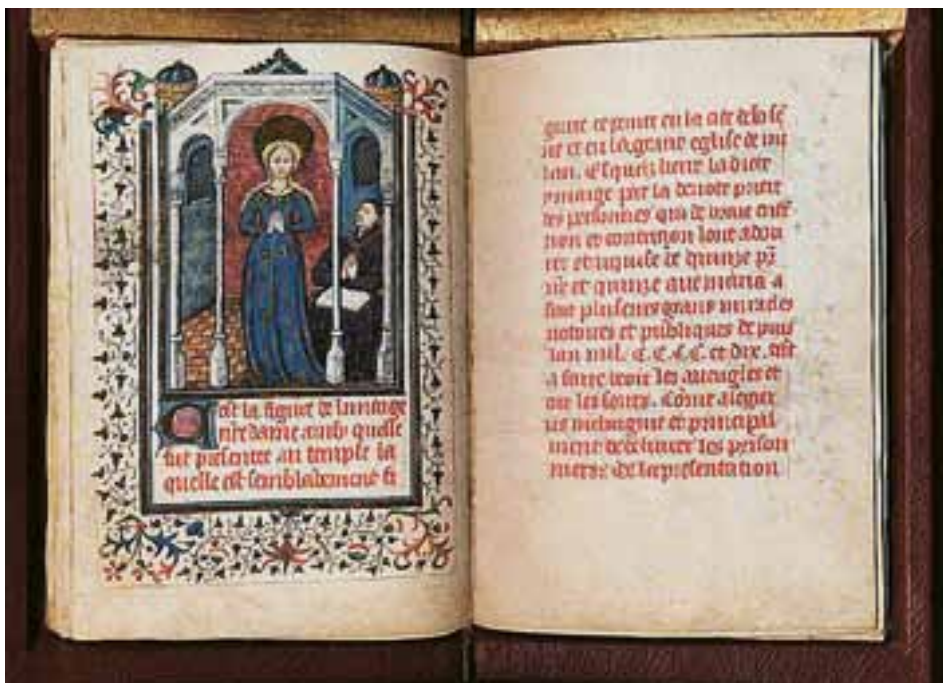 Cest la figure de limaige
nre dame ainsy quelle
fut presentee au temple la
quelle est semblablement fi
guree et peinte en la cite de
ne et en la grant eglise de mi
lan. Esquelz lieux la dicte
ymaige par la devote priere
des personnes qui de vraie
tion et contrition lont
ree et de quinze pr
nr et quinze ave maria a
fait pluseurs grans miracles
notoires et publiques de puis
lan mil. C.C.C.C. et dix. est
a faire veoir les aveugles et
oir les sours. Come alegier
et principal
ment de delivrer les prison
niers. de la presentation